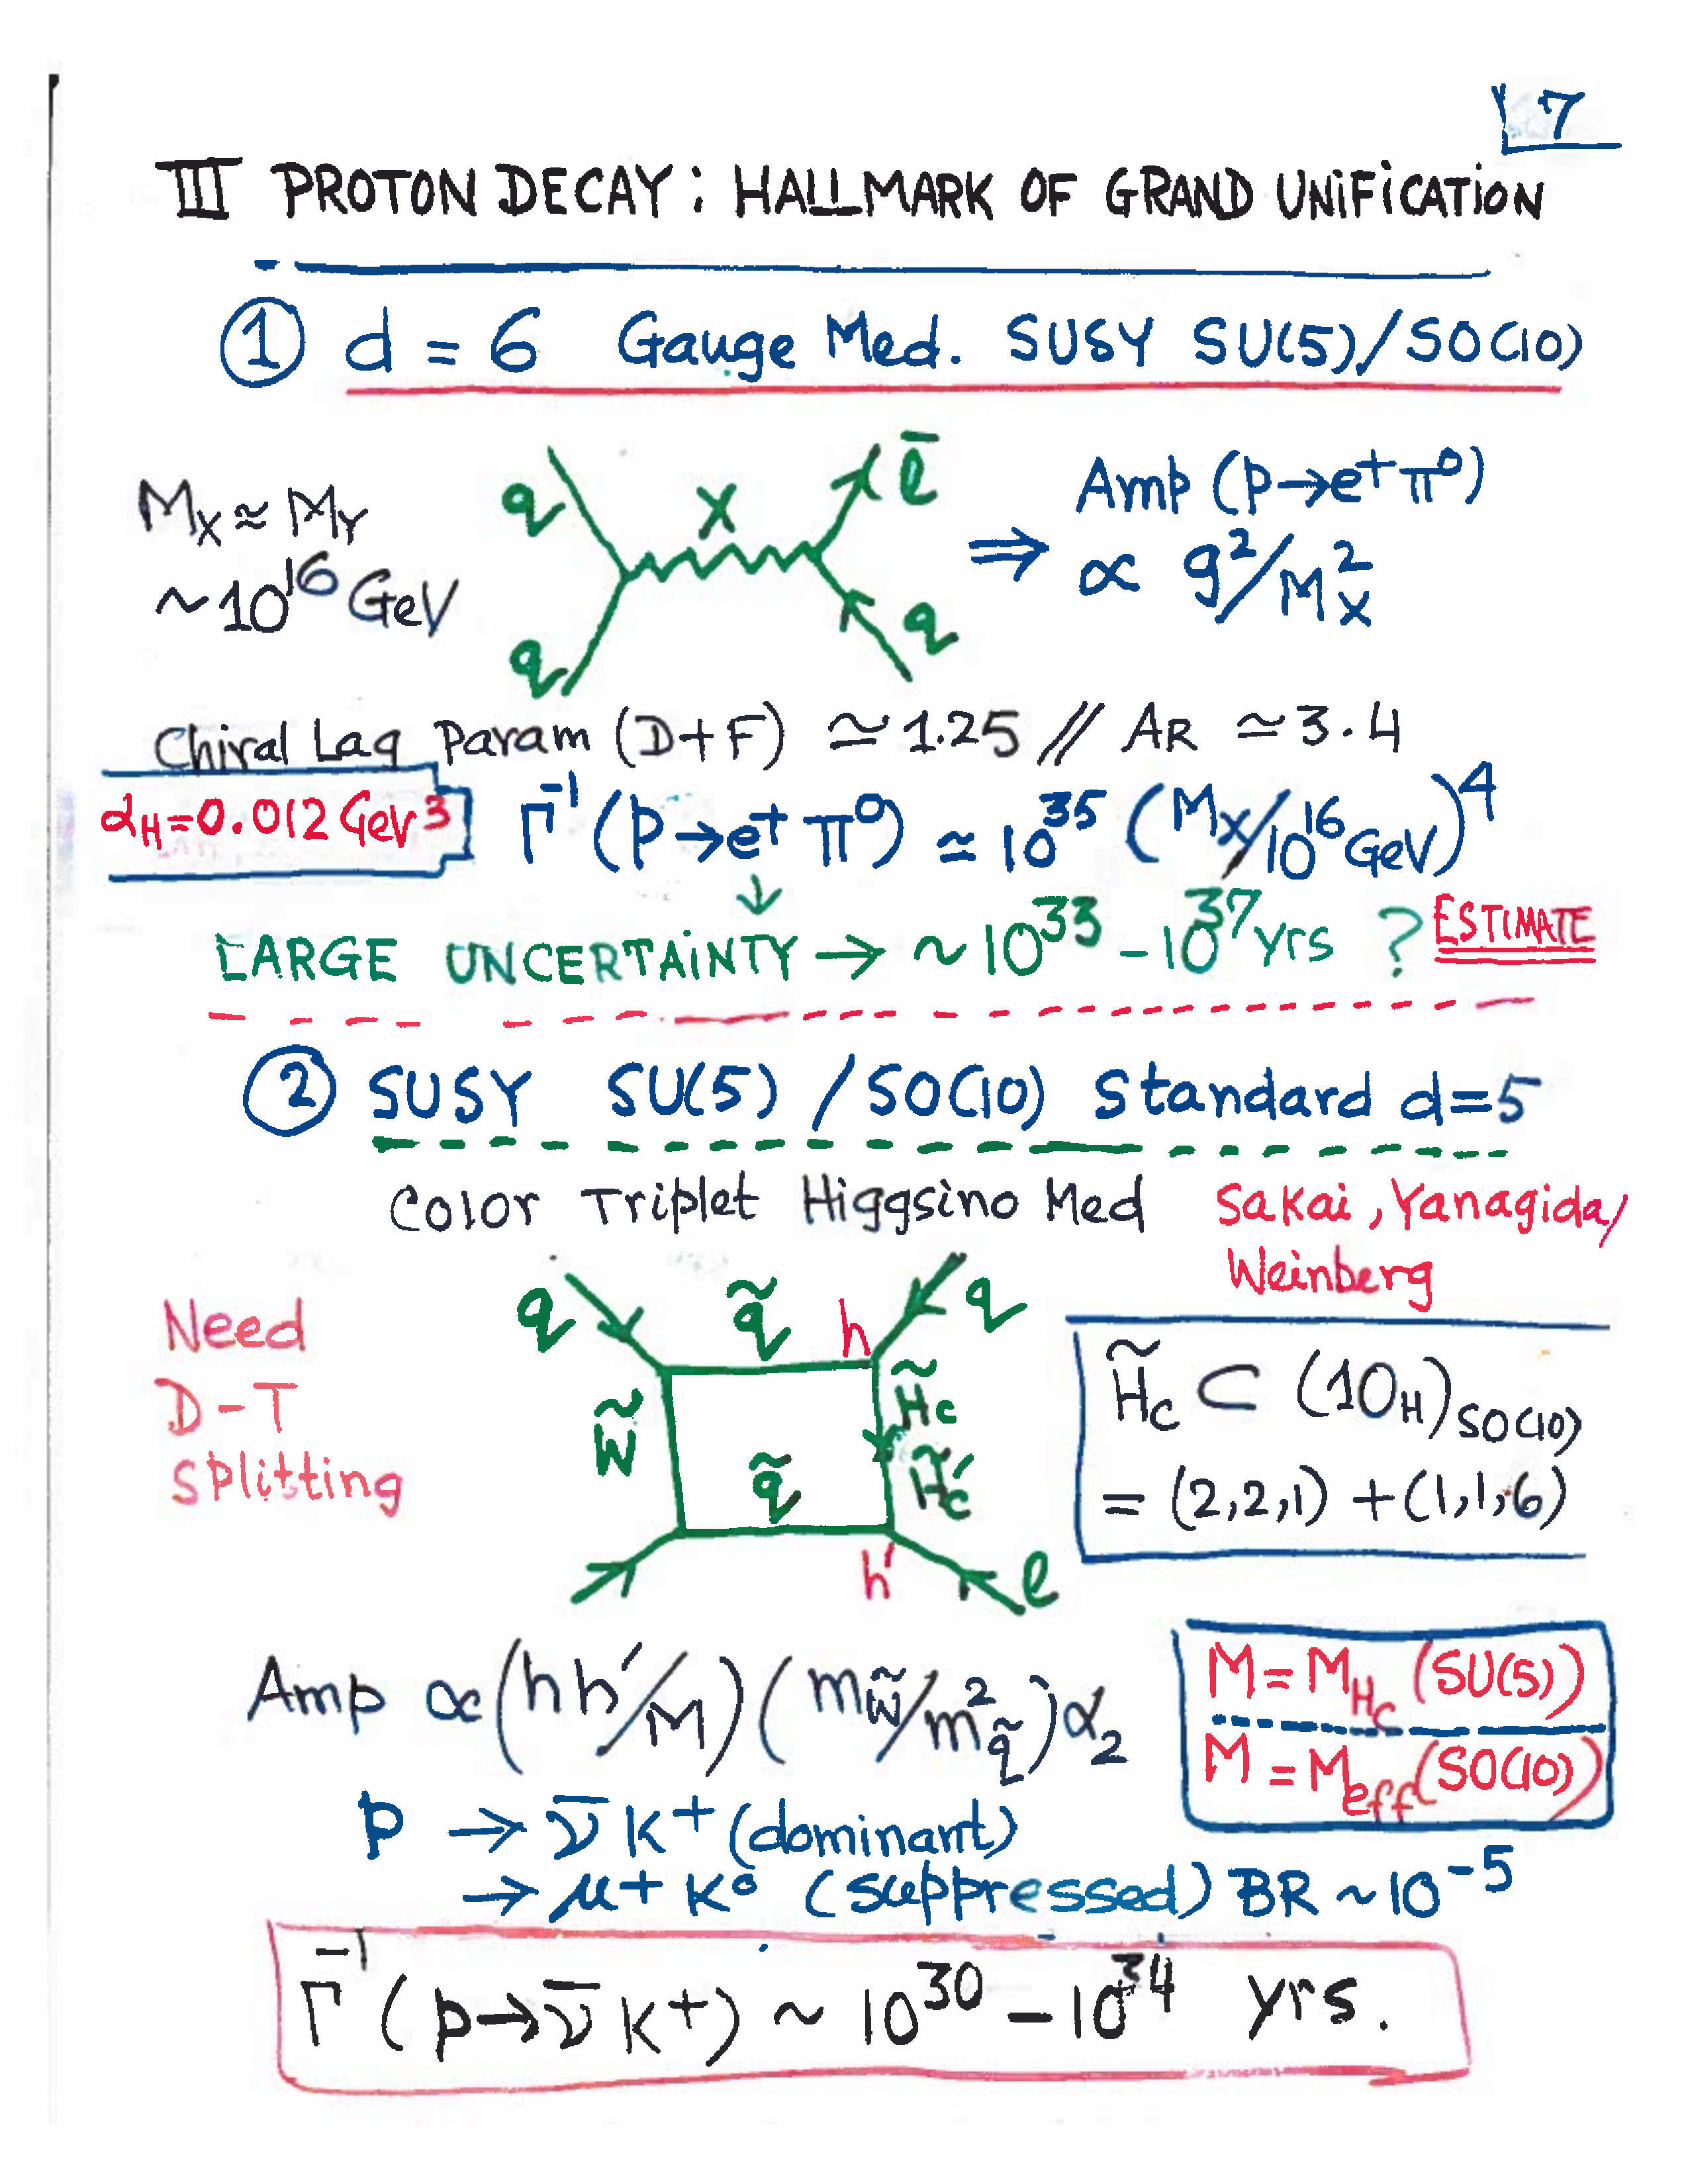 7
III PROTON DECAY: HALLMARK OF GRAND UNIFICATION
① d = 6 Gauge Med. SUSY SU(5)/SO(10)
M_X ≈ M_Y
~10^16 GeV
q X ē
q q
⇒ Amp (p→e⁺π⁰)
∝ g²/M_X²
Chiral Lag Param (D+F) ≃ 1.25 // A_R ≃ 3.4
α_H=0.012 GeV³
Γ⁻¹(p→e⁺π⁰) ≃ 10^35 (M_X/10^16 GeV)^4
↓
LARGE UNCERTAINTY → ~10^33 – 10^37 yrs ? ESTIMATE
② SUSY SU(5) /SO(10) Standard d=5
Color Triplet Higgsino Med Sakai, Yanagida/
Weinberg
Need
D-T
Splitting
q q̃ h q
W̃ H̃_C
q̃ H̃'_C
h' l
H̃_C ⊂ (10_H)_SO(10)
= (2,2,1) + (1,1,6)
Amp ∝ (hh'/M) (m_W̃/m²_q̃) α_2
M = M_H_C (SU(5))
M = M_eff (SO(10))
p → ν̄ K⁺ (dominant)
→ μ+ K⁰ (suppressed) BR ~ 10^-5
Γ⁻¹ (p→ν̄ K⁺) ~ 10^30 – 10^34 yrs.